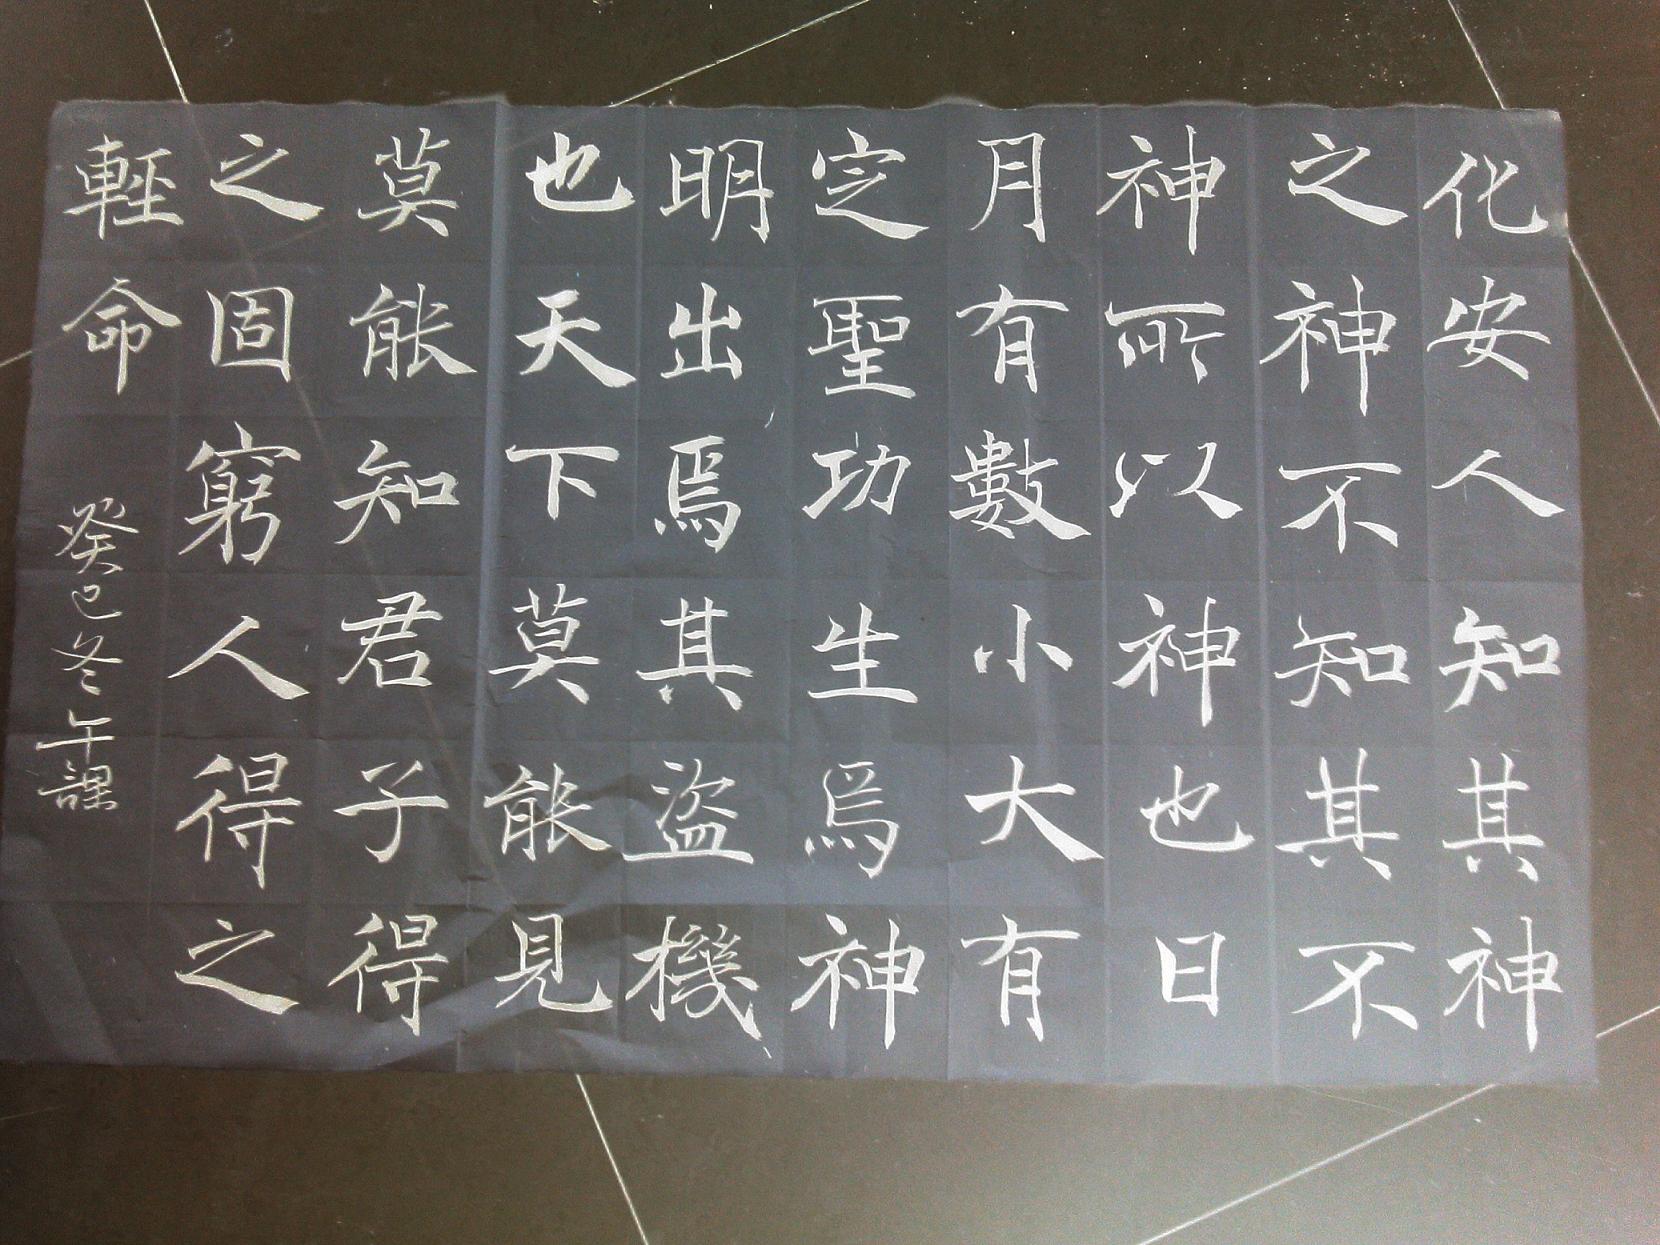 化安人知其神
之神不知其不
神所以神也日
月有數小大有
定聖功生焉神
明出焉其盜機
也天下莫能見
莫能知君子得
之固窮人得之
輕命
癸巳冬午課